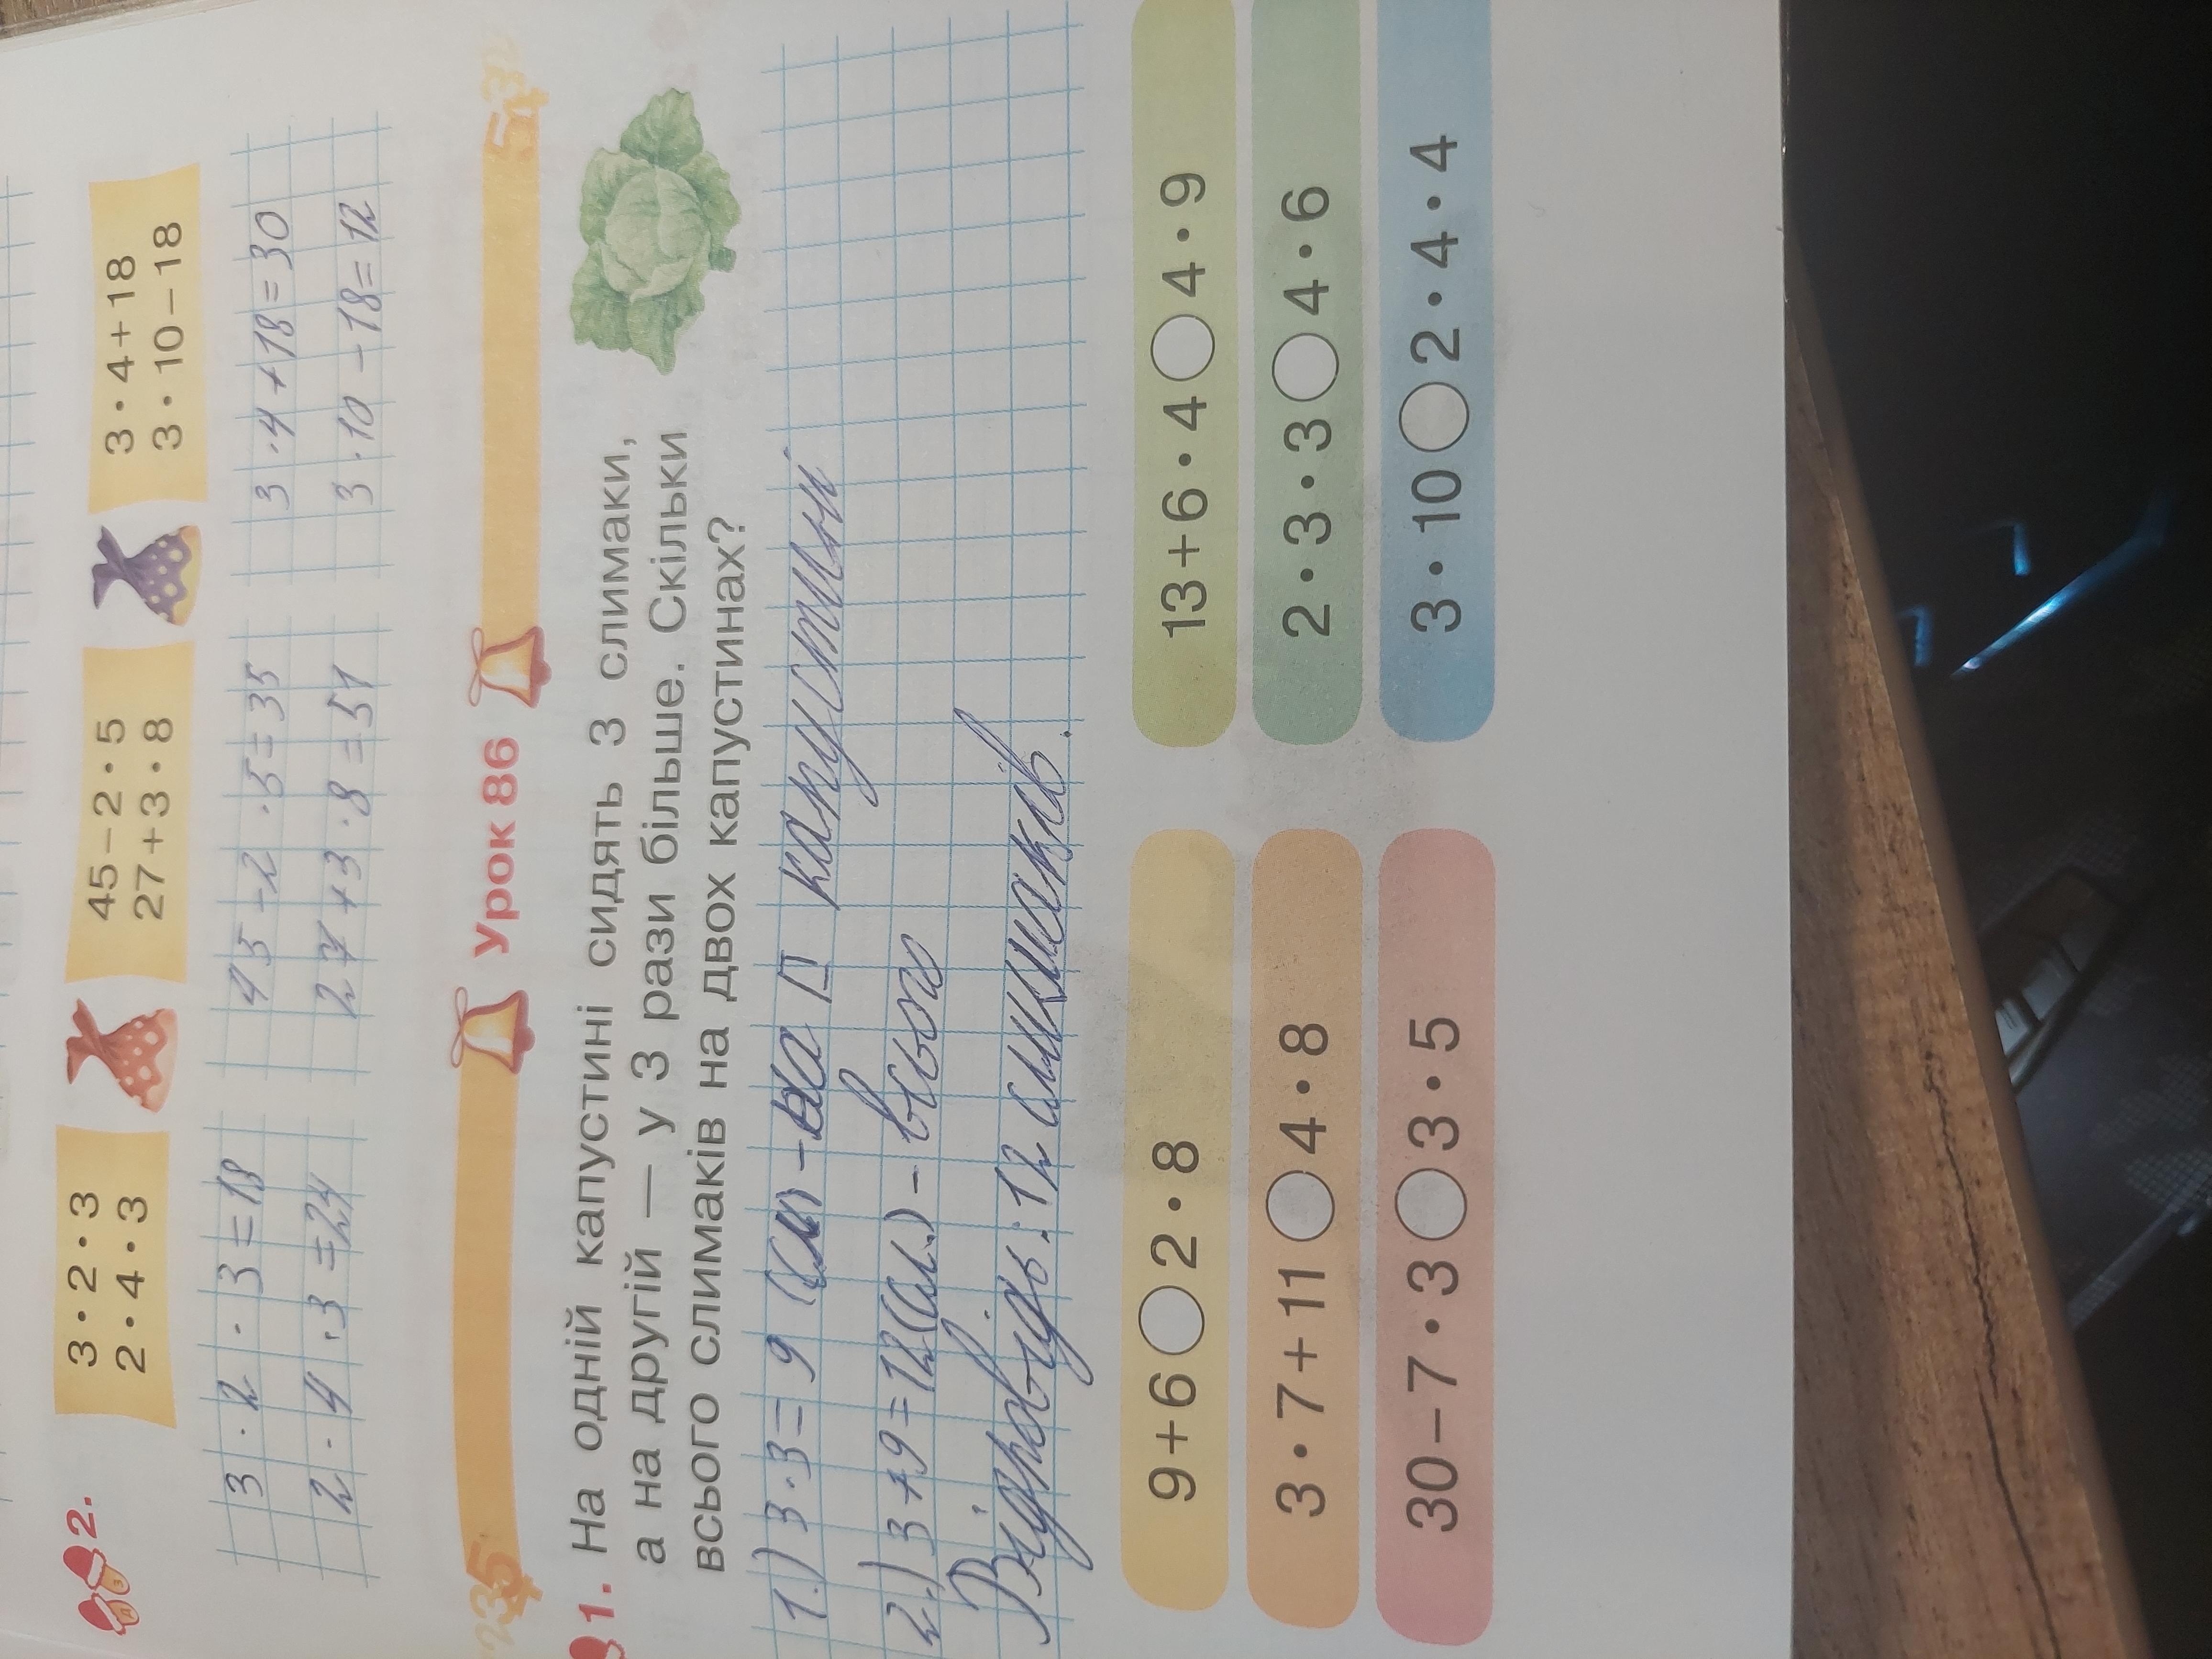 2.
3 • 2 • 3
2 • 4 • 3
45 – 2 • 5
27 + 3 • 8
3 • 4 + 18
3 • 10 – 18
3 · 2 · 3 = 18
2 · 4 · 3 = 24
45 - 2 · 5 = 35
27 + 3 · 8 = 51
3 · 4 + 18 = 30
3 · 10 - 18 = 12
Урок 86
1. На одній капустині сидять 3 слимаки,
а на другій — у 3 рази більше. Скільки
всього слимаків на двох капустинах?
1.) 3 · 3 = 9 (сл) - на II капустині
2.) 3 + 9 = 12 (сл.) - всього
Відповідь: 12 слимаків.
9 + 6 ◯ 2 • 8
3 • 7 + 11 ◯ 4 • 8
30 – 7 • 3 ◯ 3 • 5
13 + 6 • 4 ◯ 4 • 9
2 • 3 • 3 ◯ 4 • 6
3 • 10 ◯ 2 • 4 • 4